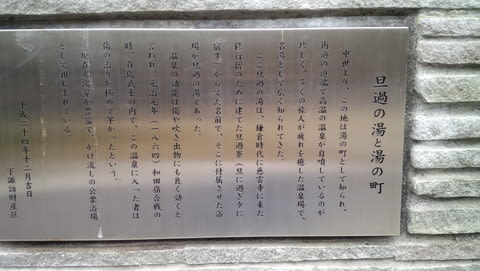 旦過の湯と湯の町
中世より、この地は湯の町として知られ、
街道の道端で高温の温泉が自噴しているのが
珍しく、多くの旅人が疲れを癒した温泉場で、
名湯として広く知られてきた。
ここ旦過の湯は、鎌倉時代に慈雲寺に来た
修行僧のために建てた旦過寮(旦に過ぎ夕に
宿す)から来た名前で、そこに付属させた浴
場が旦過の湯であった。
温泉の効能は傷や吹き出物にも良く効くと
言われ、元治元年(一八六四)和田嶺合戦の
時、各藩武士の内で、この温泉に入った者は
傷の治りが極めて早かったという。
現在も湯量が豊富で、かけ流しの公衆浴場
として親しまれている。
平成二十四年十二月吉日
下諏訪財産区